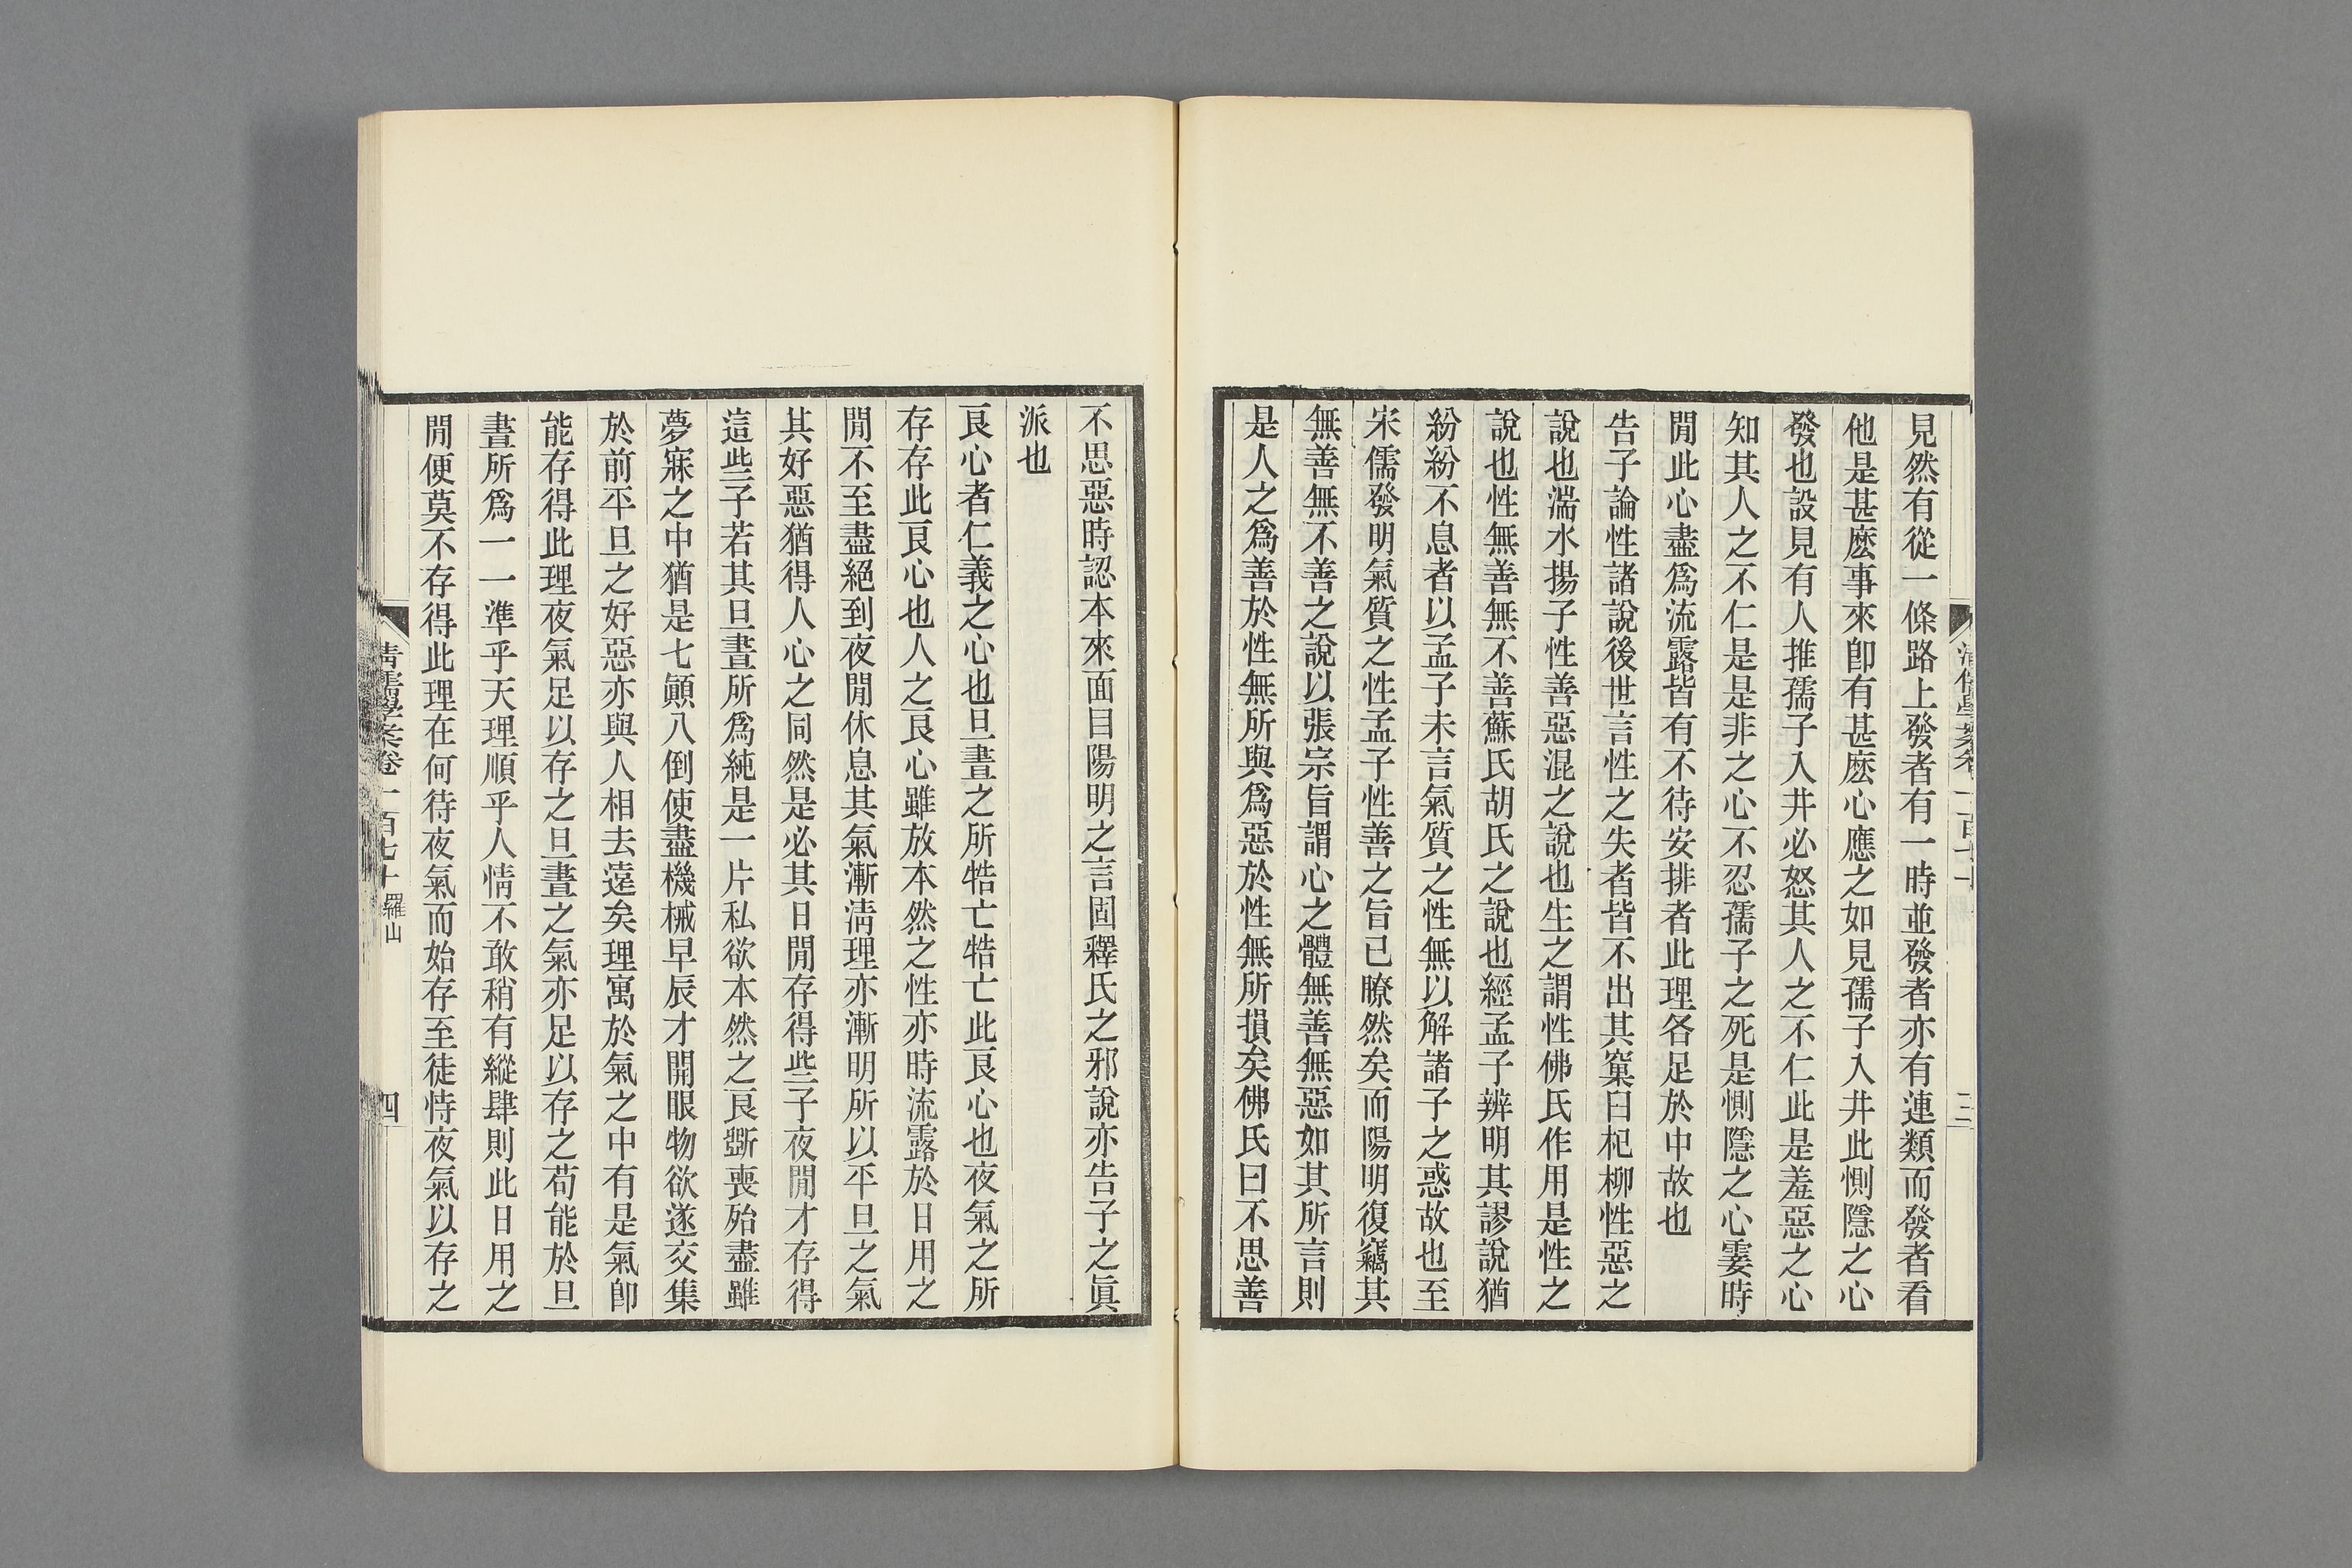 見然有從一條路上發者有一時並發者亦有連類而發者看
他是甚麽事來卽有甚麽心應之如見孺子入井此惻隱之心
發也設見有人推孺子入井必怒其人之不仁此是羞惡之心
知其人之不仁是是非之心不忍孺子之死是惻隱之心霎時
閒此心盡爲流露皆有不待安排者此理各足於中故也
告子論性諸說後世言性之失者皆不出其窠臼杞柳性惡之
說也湍水揚子性善惡混之說也生之謂性佛氏作用是性之
說也性無善無不善蘇氏胡氏之說也經孟子辨明其謬說猶
紛紛不息者以孟子未言氣質之性無以解諸子之惑故也至
宋儒發明氣質之性孟子性善之旨已瞭然矣而陽明復竊其
無善無不善之說以張宗旨謂心之體無善無惡如其所言則
是人之爲善於性無所與爲惡於性無所損矣佛氏曰不思善
三
不思惡時認本來面目陽明之言固釋氏之邪說亦告子之眞
派也
良心者仁義之心也旦晝之所牿亡牿亡此良心也夜氣之所
存存此良心也人之良心雖放本然之性亦時流露於日用之
閒不至盡絕到夜閒休息其氣漸淸理亦漸明所以平旦之氣
其好惡猶得人心之同然是必其日閒存得些子夜閒才存得
這些子若其旦晝所爲純是一片私欲本然之良斲喪殆盡雖
夢寐之中猶是七顚八倒使盡機械早辰才開眼物欲遂交集
於前平旦之好惡亦與人相去遠矣理寓於氣之中有是氣卽
能存得此理夜氣足以存之旦晝之氣亦足以存之苟能於旦
晝所爲一一準乎天理順乎人情不敢稍有縱肆則此日用之
閒便莫不存得此理在何待夜氣而始存至徒恃夜氣以存之
清儒學案卷一百七十 羅山
四